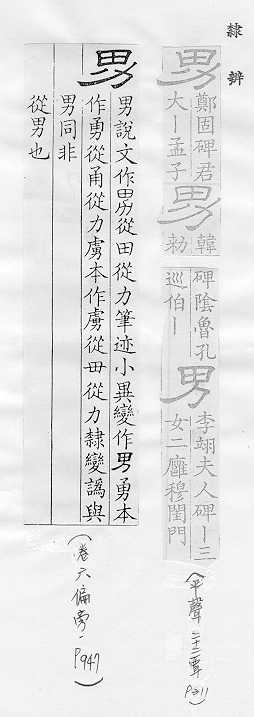 隸辨
男 鄭固碑君大丨孟子 男 韓勑碑陰魯孔巡伯丨 男 李翊夫人碑丨三女二雁穆閨門
(平聲二十二覃 P311)
男 男說文作男從田從力筆迹小異變作男勇本
作勇從甬從力虜本作虜從毌從力隸變譌與
男同非
從男也
(卷六偏旁 P947)